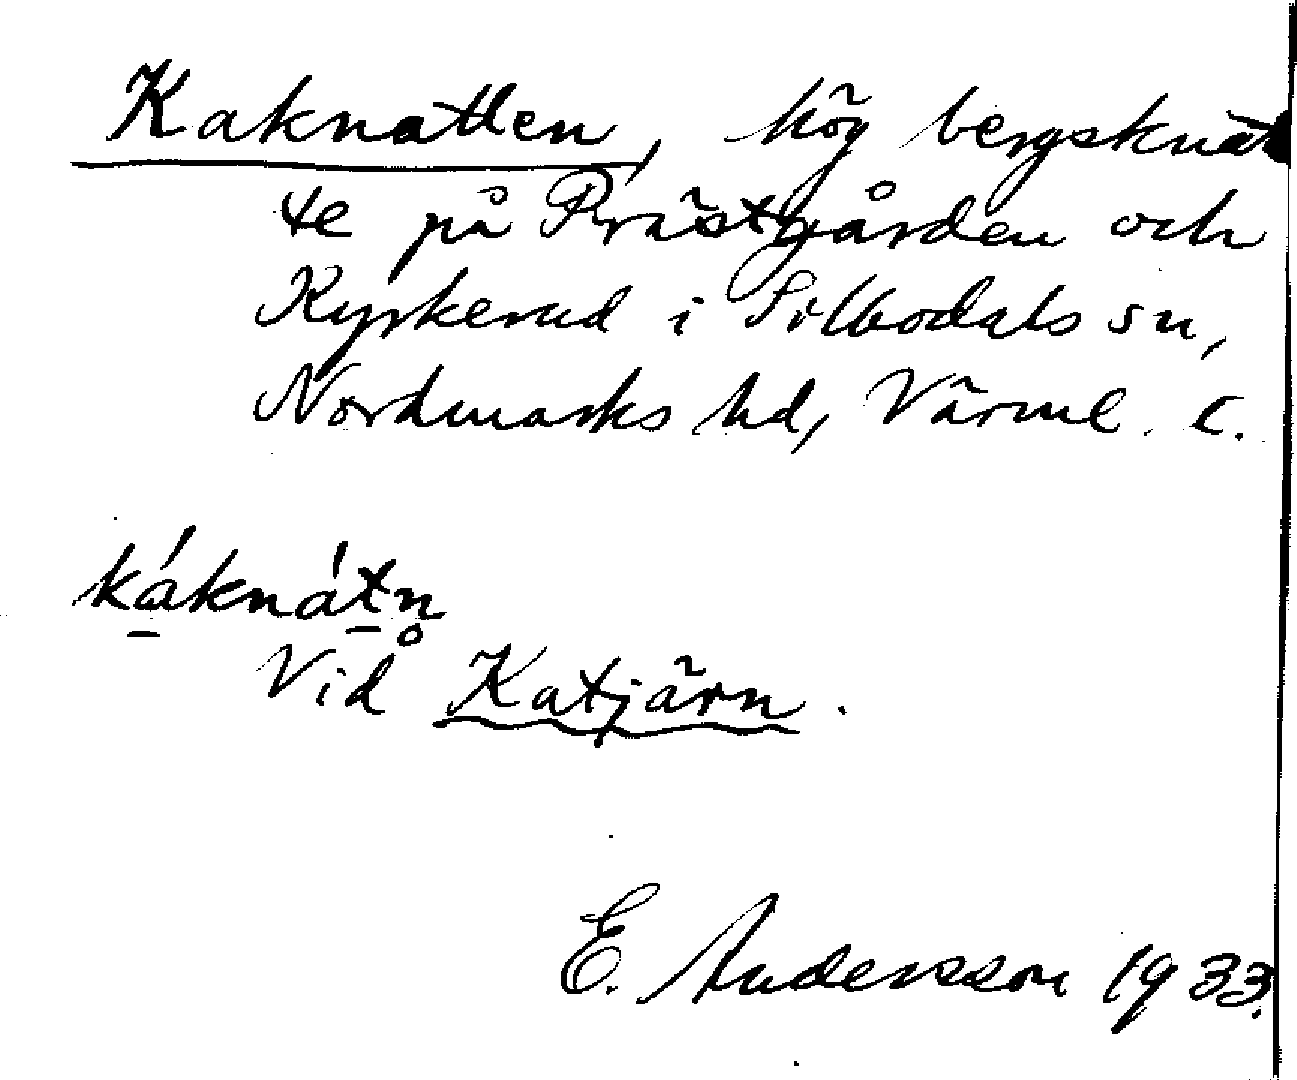 Kaknatten, hög bergsknat
te på Prästgården och
Kyrkerud i Silbodals sn,
Nordmarks hd, Värml. l.
káknátn̥
Vid Katjärn.
E. Andersson 1933.